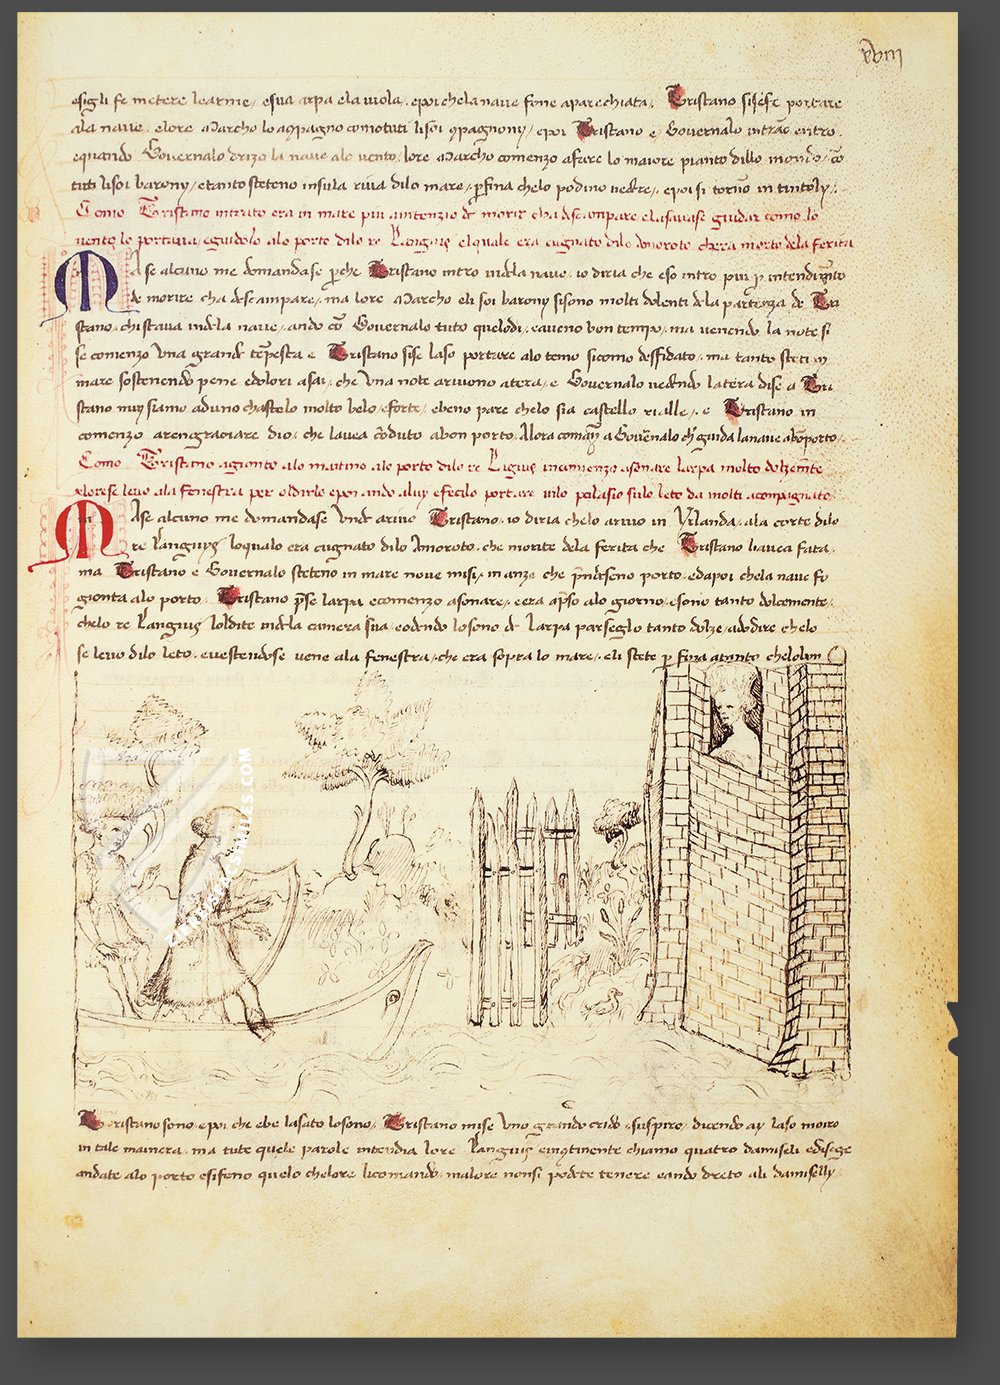 xviii
esigli fe metere learme, esua arpa ela viola, epoi chela naue fune aparechiata, Tristano sisefe portare
ala naue, elore Marcho lo aɔpagno com tuti lisoi ɔpagnony, epoi Tristano e Gouernalo intrão entro,
equando Gouernalo drizo la naue alo uento, lore Marcho comenzo afare lo maiore pianto dillo mondo, cō
tuti lisoi barony, etanto steteno insula riua dilo mare, ꝑfina chelo podino uedere, epoi si torno in tintoly,
Como Tristano intrato era in mare piu intenzio de morir cha descanpare elasiuase guidar como lo
uento lo portaua, eguidolo alo porto dilo re Languis elquale era cugnato dilo Amoroto chera morto dela ferita
MA se alcuno me domandase ꝑche Tristano intro indela naue, io diria che eso intro piu ꝑ intendimto
de morire cha descampare, ma lore Marcho eli soi barony sisono molti dolenti dela partenza de Tri
stano, chistaua indela naue, ando cō Gouernalo tuto quelodi, eaueno bon tempo, ma uenendo la note si
se comenzo una grande tēpesta e Tristano sise laso portare alo temo sicomo desfidato, ma tanto steti in
mare sostenendo pene edolori asai, che una note ariuono atera, e Gouernalo uedendo latera dise a Tri
stano nuy siamo aduno chastelo molto belo, eforte, ebeno pare chelo sia castello rialle, e Tristano in
comenzo arengraciare dio, che lauea cōduto abon porto, Alora comādo a Gouernalo che guida lanaue abō porto,
Como Tristano agionto alo matino alo porto dilo re Ligius incomenzo asonare larpa molto dolzemēte
elorese leuo ala fenestra per oldirlo epoi ando aluy efecilo portare inlo palasio sulo leto da molti acompagnato
MAse alcuno me domandase unde ariuo Tristano, io diria chelo ariuo in Yrlanda, ala corte dilo
re Languys loqualo era cugnato dilo Amoroto, che morite dela ferita che Tristano liauea fata,
ma Tristano e Gouernalo steteno in mare noue misi, inanze che prendeseno porto, edapoi chela naue fo
gionta alo porto, Tristano prese larpa ecomenzo asonare, eera apso alo giorno, esono tanto dolcemente,
chelo re Languis loldite indela camera sua, eodendo losono de larpa parseglo tanto dolze, adodire chelo
se leuo dilo leto, euestendose uene ala fenestra, che era sopra lo mare, eli stete ꝑ fina atanto chelobon
Tristano sono, epoi che ebe lasato losono, Tristano mise uno grando crido, suspiro, dicendo ay laso moro
in tale mainera, ma tute quele parole intendia lore Languis einɔtinente chiamo quatro damiseli edisege
andate alo porto esifeno quelo chelore licomando, malore nonsi podete tenere eando dreto ali damiselly